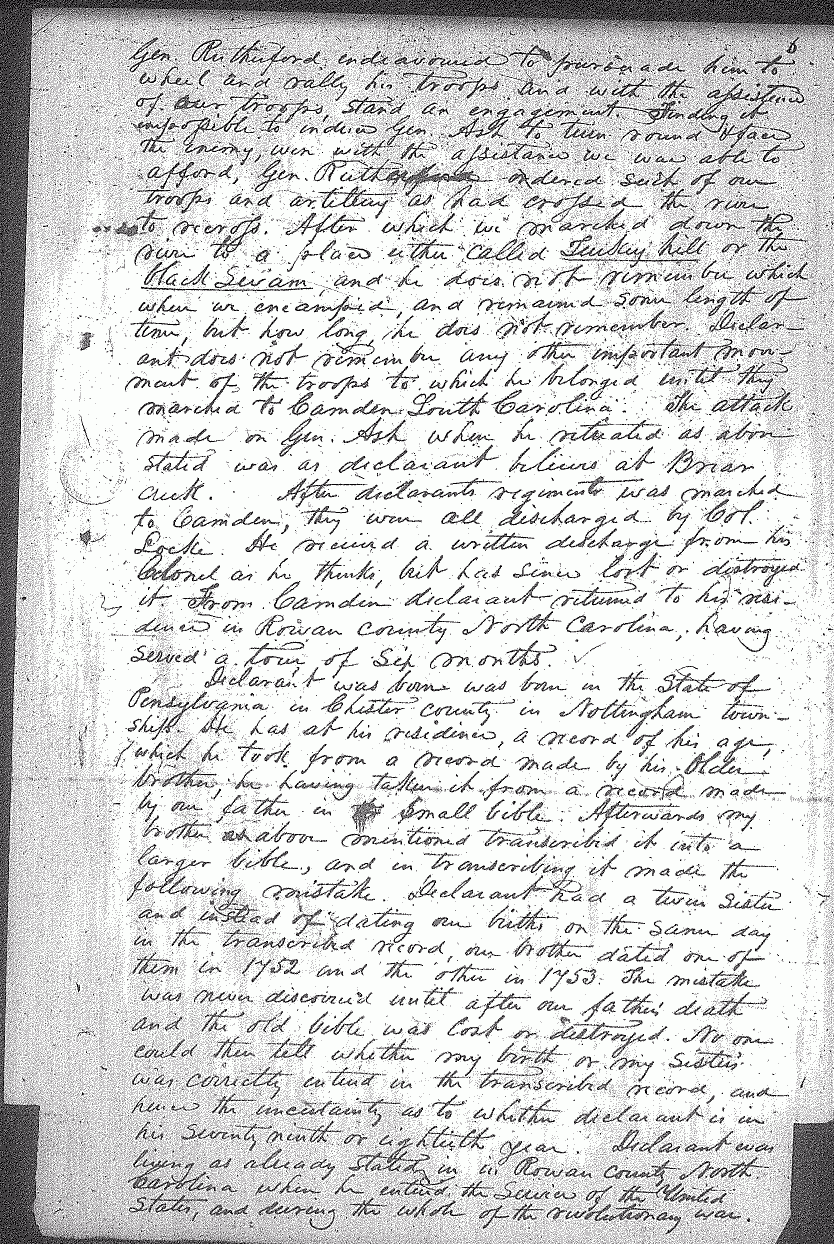 6
Gen. Rutherford endeavoured to persuade him to
wheel and rally his troops and with the assistance
of our troops, stand an engagement. Finding it
impossible to induce Gen. Ash to turn round & face
the enemy, even with the assistance we was able to
afford, Gen. Rutherford ordered such of our
troops and artillery as had crossed the river
to recross. After which we marched down the
river to a place either called Turkey hill or the
black Swam, and he does not remember which
where we encamped, and remained some length of
time, but how long, he does not remember. Declar-
ant does not remember any other important move-
ment of the troops to which he belonged until they
marched to Camden South Carolina. The attack
made on Gen. Ash when he retreated as above
stated was as declarant believes at Briar
Creek. After declarants regiment was marched
to Camden, they were all discharged by Col.
Locke. He received a written discharge from his
Colonel as he thinks, but has since lost or distroyed
it. From Camden declarant returned to his resi-
dence in Rowan county North Carolina, having
served a tour of Six months.
Declarant was born was born in the State of
Pensylvania in Chester county in Nottingham town-
ship. He has at his residence, a record of his age,
which he took from a record made by his Older
brother, he having taken it from a record made
by our father in Small bible. Afterwards my
brother as above mentioned transcribed it into a
larger bible, and in transcribing it made the
following mistake. Declarant had a twin Sister
and instead of dating our births on the same day
in the transcribed record, our brother dated one of
them in 1752 and the other in 1753. The mistake
was never discovered until after our father's death
and the old bible was lost or distroyed. No one
could then tell whether my birth or my Sisters
was correctly entered in the transcribed record, and
hence the uncertainty as to whether declarant is in
his Seventy ninth or eightieth year. Declarant was
living as already stated in in Rowan county North
Carolina when he entered the Service of the United
States, and during the whole of the revolutionary war.